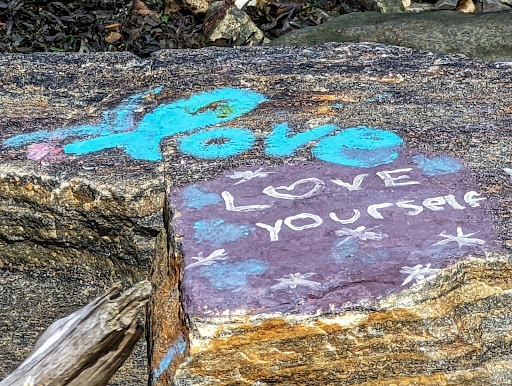 Love
LOVE
YOURSELF